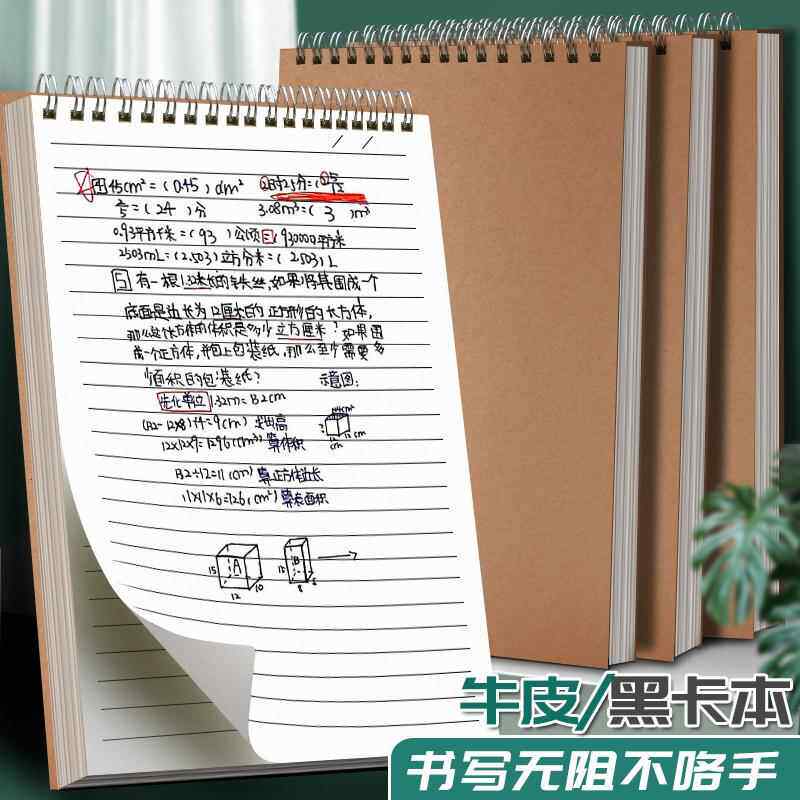 用45cm²=(0.45)dm² ②时25分=(
=(24)分 3.08m³=(3 )m³
0.93平方千米=(93)公顷=(930000平方米
2503mL=(2.503)立方分米=(2.503)L
5 有一根1.32米长的铁丝,如果将其围成一个
底面是边长为12厘米的正方形的长方体,
那么这个长方体的体积是多少立方厘米?如果围
成一个正方体,并包上包装纸,那么至少需要多
少面积的包装纸? 示意图:
先化单位 1.32m=132cm
(132-12×8)÷4=9(cm) 求出高
12×12×9=1296(cm³)算体积
12 cm
12
cm
132÷12=11(cm)算正方体边长
11×11×6=726(cm²)算表面积
15 A 10
12
15 B
8
牛皮/黑卡本
书写无阻不咯手